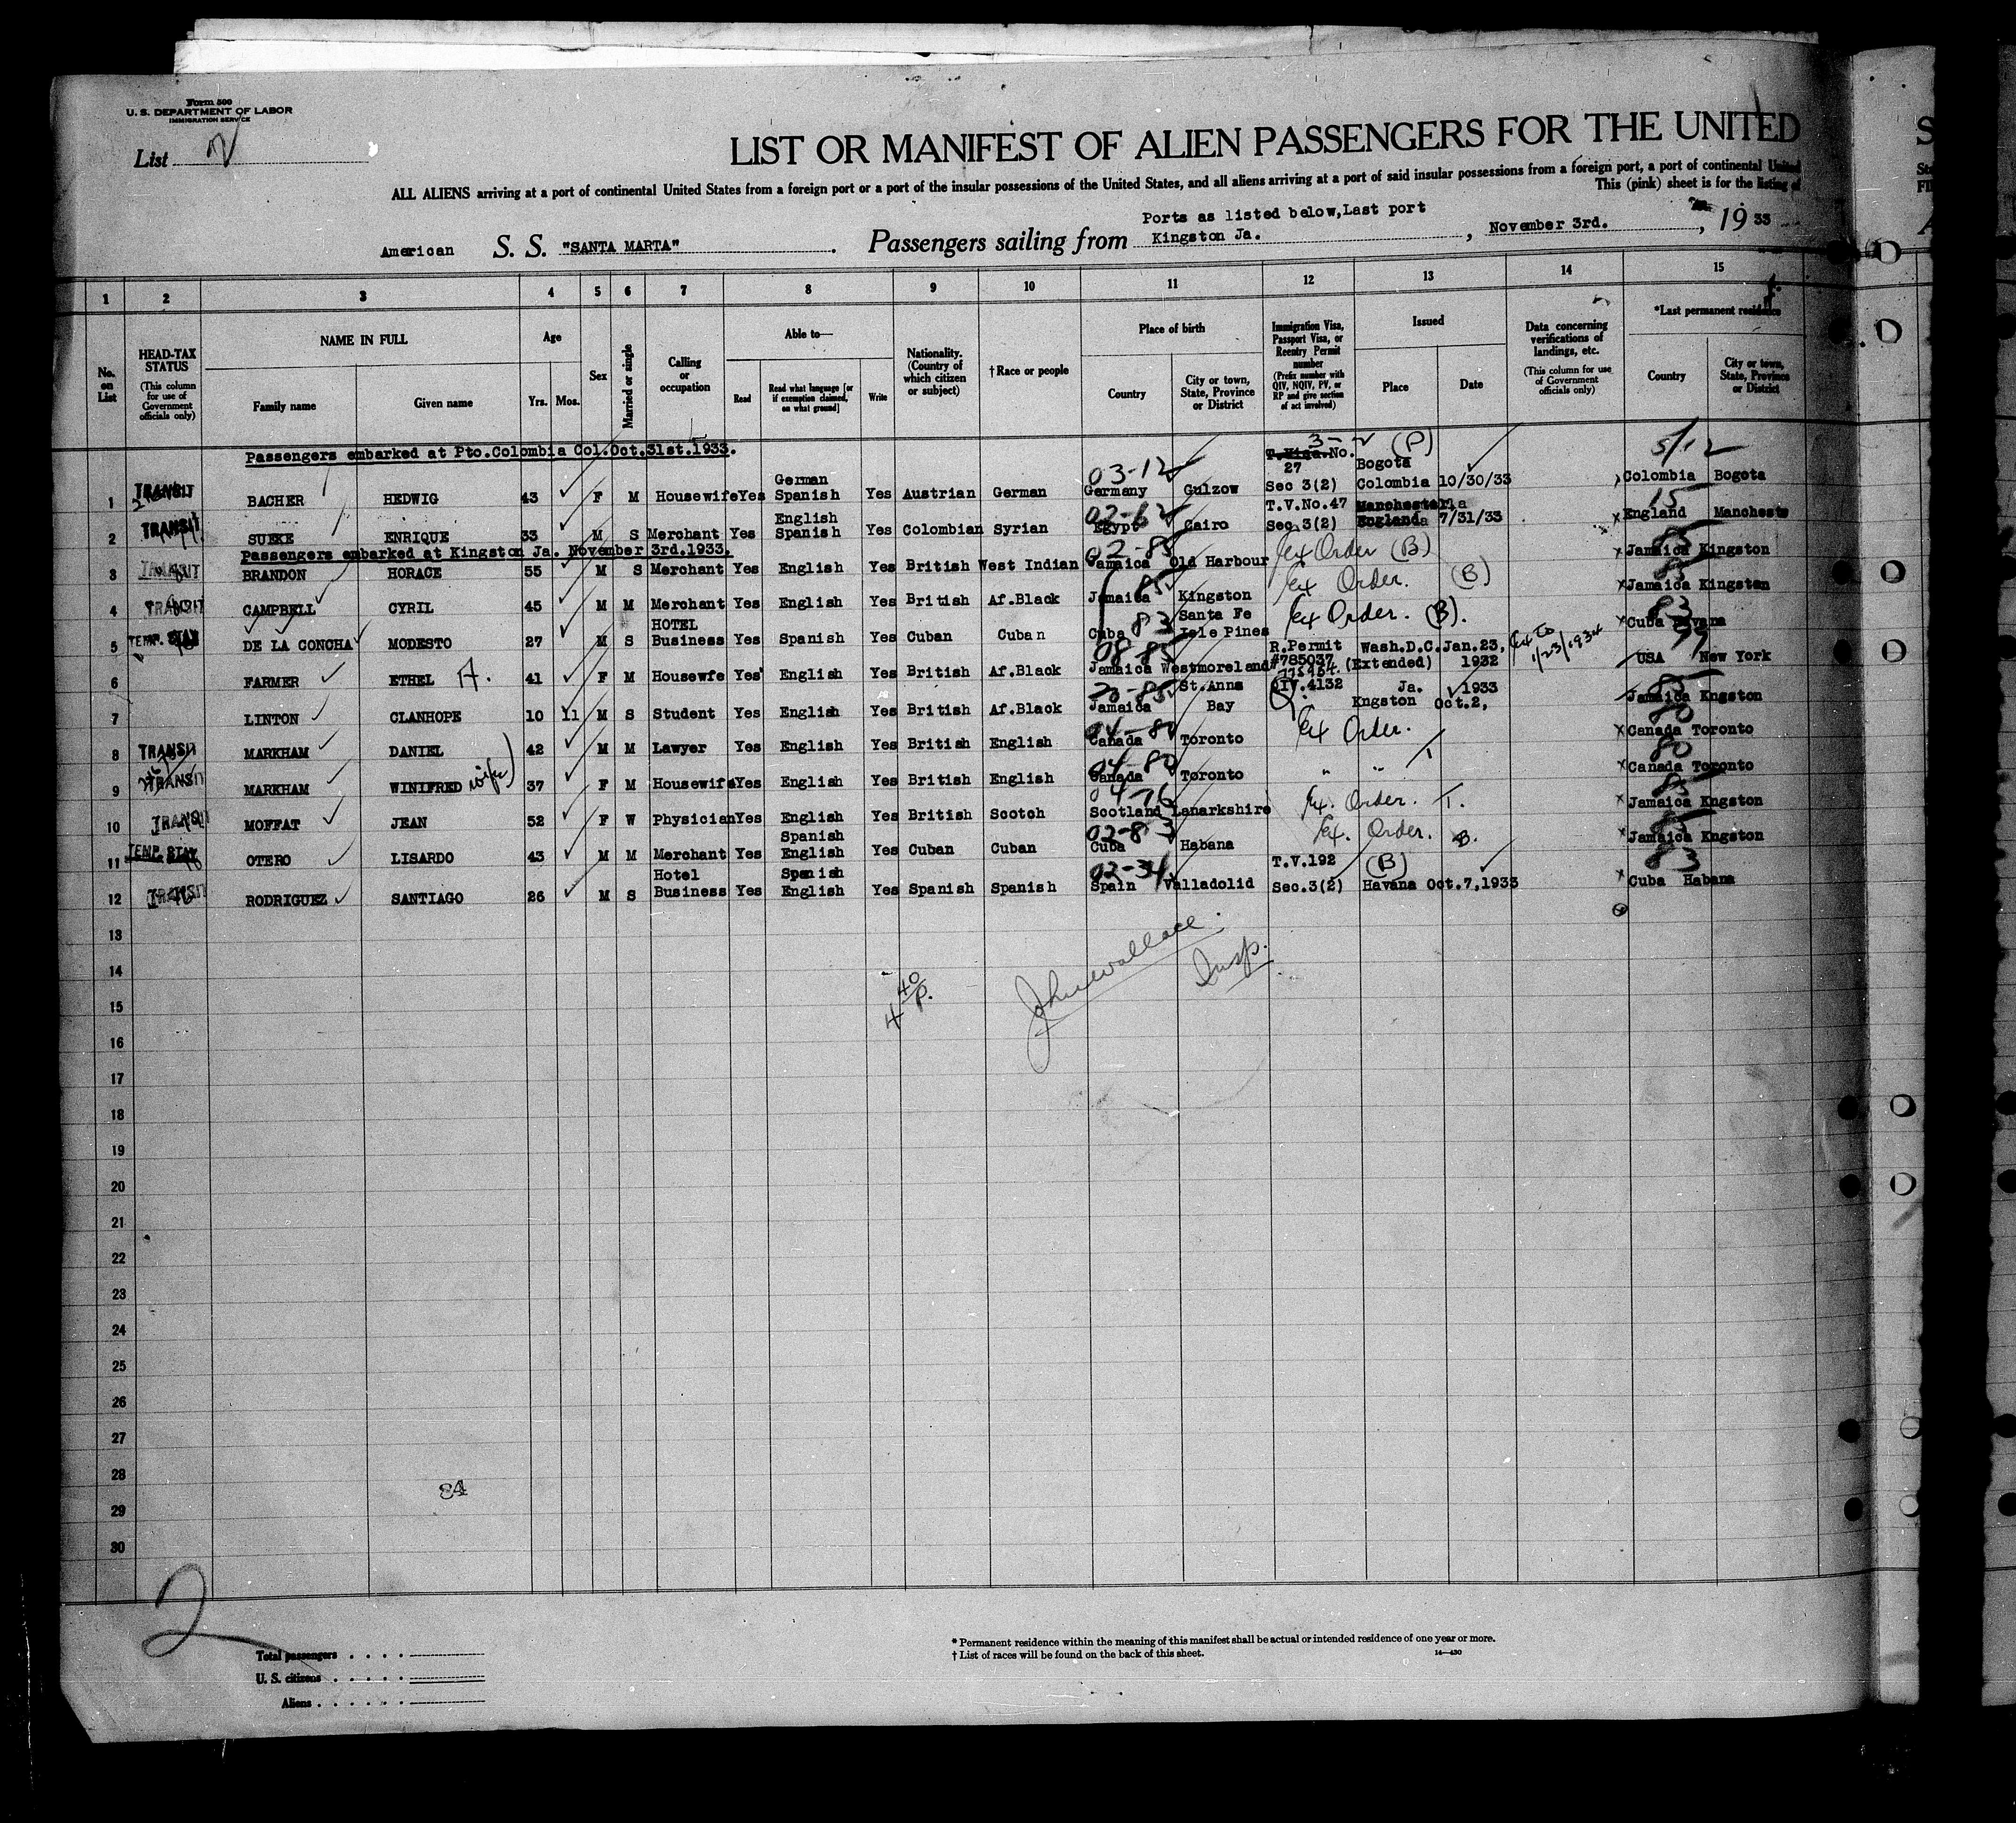 Form 500
U. S. DEPARTMENT OF LABOR
IMMIGRATION SERVICE
List 2
LIST OR MANIFEST OF ALIEN PASSENGERS FOR THE UNITED
ALL ALIENS arriving at a port of continental United States from a foreign port or a port of the insular possessions of the United States, and all aliens arriving at a port of said insular possessions from a foreign port, a port of continental United
This (pink) sheet is for the listing of
Ports as listed below,Last port
American S. S. "SANTA MARTA" . Passengers sailing from Kingston Ja. , November 3rd. , 19 33
1 2 3 4 5 6 7 8 9 10 11 12 13 14 15
No. on List
HEAD-TAX STATUS (This column for use of Government officials only)
NAME IN FULL Family name Given name
Age Yrs. Mos.
Sex
Married or single
Calling or occupation
Able to— Read Read what language [or if exemption claimed, on what ground] Write
Nationality. (Country of which citizen or subject)
†Race or people
Place of birth Country City or town, State, Province or District
Immigration Visa, Passport Visa, or Reentry Permit number (Prefix number with QIV, NQIV, PV, or RP and give section of act involved)
Issued Place Date
Data concerning verifications of landings, etc. (This column for use of Government officials only)
*Last permanent residence Country City or town, State, Province or District
Passengers embarked at Pto.Colombia Col.Oct.31st.1933.
3-2 (P)
03-12 T.Visa.No. 27 Bogota 5/12
1 TRANSIT BACHER HEDWIG 43 F M Housewife Yes German Spanish Yes Austrian German Germany Gulzow Sec 3(2) Colombia 10/30/33 Colombia Bogota
02-62 T.V.No.47 15
2 TRANSIT SUEKE ENRIQUE 33 M S Merchant Yes English Spanish Yes Colombian Syrian Egypt Cairo Sec 3(2) England 7/31/33 England Mancheste
Passengers embarked at Kingston Ja. November 3rd.1933.
02-85 85
3 TRANSIT BRANDON HORACE 55 M S Merchant Yes English Yes British West Indian Jamaica Old Harbour Ex Order (B) Jamaica Kingston
85 85
4 TRANSIT CAMPBELL CYRIL 45 M M Merchant Yes English Yes British Af.Black Jamaica Kingston Ex Order. (B) Jamaica Kingston
83 83
5 TEMP. STAY DE LA CONCHA MODESTO 27 M S HOTEL Business Yes Spanish Yes Cuban Cuban Cuba Santa Fe Isle Pines Ex Order. (B). Cuba Havana
08-85 99
6 FARMER ETHEL A. 41 F M Housewfe Yes English Yes British Af.Black Jamaica Westmoreland R.Permit #785037 Wash.D.C. (Extended) Jan.23, 1932 Ex to 1/23/1934 USA New York
20-85 85
7 LINTON CLANHOPE 10 11 M S Student Yes English Yes British Af.Black Jamaica St.Anns Bay QIV.4132 Kngston Ja. Oct.2, 1933 Jamaica Kngston
04-80 80
8 TRANSIT MARKHAM DANIEL 42 M M Lawyer Yes English Yes British English Canada Toronto Ex Order. Canada Toronto
04-80 80
9 TRANSIT MARKHAM WINIFRED wife 37 F M Housewife Yes English Yes British English Canada Toronto " " T Canada Toronto
04-76 85
10 TRANSIT MOFFAT JEAN 52 F W Physician Yes English Yes British Scotch Scotland Lanarkshire Ex. Order. T. Jamaica Kngston
02-83 85
11 TEMP. STAY OTERO LISARDO 43 M M Merchant Yes Spanish English Yes Cuban Cuban Cuba Habana Ex. Order. B. Jamaica Kngston
02-34 83
12 TRANSIT RODRIGUEZ SANTIAGO 26 M S Hotel Business Yes Spanish English Yes Spanish Spanish Spain Valladolid T.V.192 Sec.3(2) (B) Havana Oct.7,1933 Cuba Habana
13
14
John Wallace Insp.
4 40/P.
15
16
17
18
19
20
21
22
23
24
25
26
27
28
84
29
30
2
Total passengers
U. S. citizens
Aliens
* Permanent residence within the meaning of this manifest shall be actual or intended residence of one year or more.
† List of races will be found on the back of this sheet.
14—430